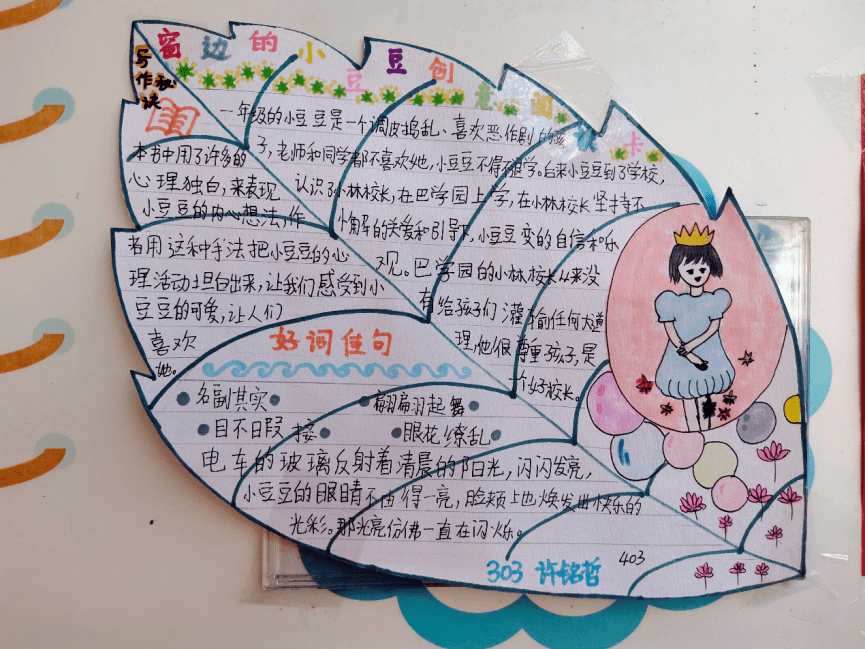 窗边的小豆豆创意阅读卡
写作秘诀
本书中用了许多的
心理独白,来表现
小豆豆的内心想法,作
者用这种手法把小豆豆的心
理活动坦白出来,让我们感受到小
豆豆的可爱,让人们
喜欢
她。
一年级的小豆豆是一个调皮捣乱、喜欢恶作剧的孩
子,老师和同学都不喜欢她,小豆豆不得不退学。后来小豆豆到了学校,
认识了小林校长,在巴学园上学,在小林校长坚持不
懈的关爱和引导下,小豆豆变的自信和乐
观。巴学园的小林校长从来没
有给孩子们灌输任何大道
理,他很尊重孩子,是
一个好校长。
好词佳句
名副其实 翩翩起舞
目不日暇接 眼花缭乱
电车的玻璃反射着清晨的阳光,闪闪发亮,
小豆豆的眼睛不由得一亮,脸颊上也焕发出快乐的
光彩。那光亮仿佛一直在闪烁。
303 许铭哲
403